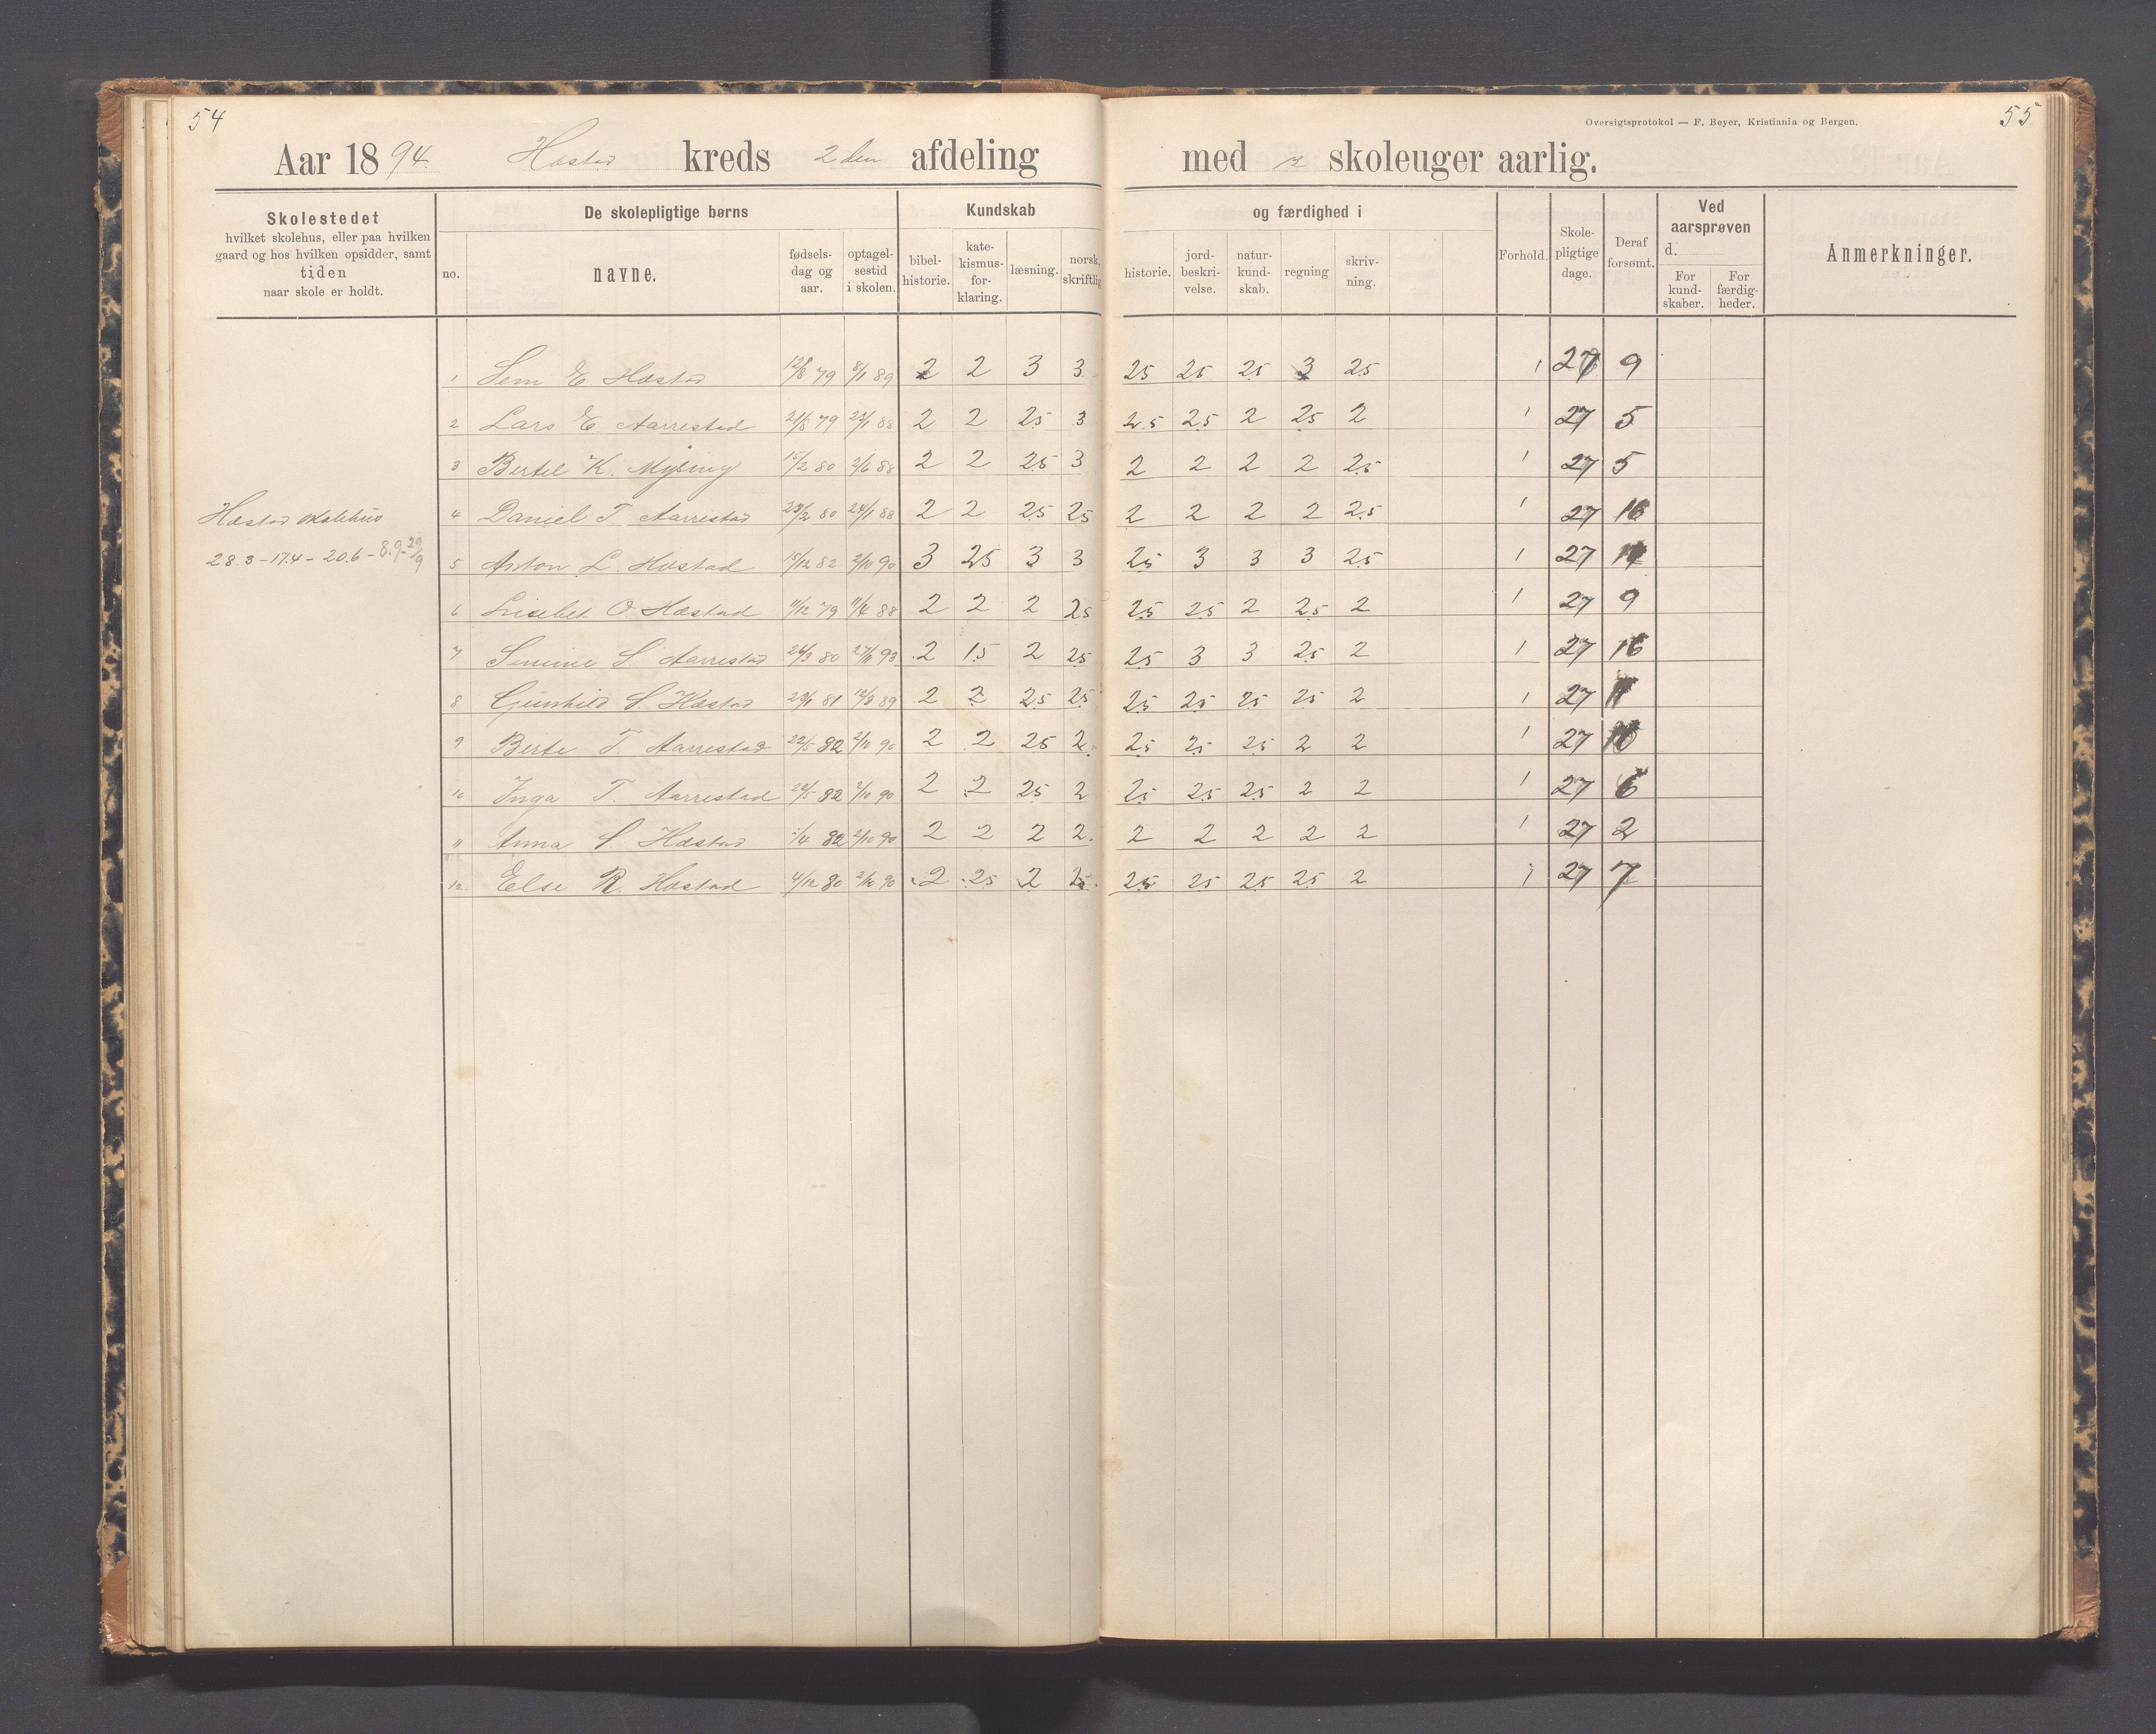 54
55.
Oversigtsprotokol — F. Beyer, Kristiania og Bergen.
Aar 1894. Hæstad kreds 2den afdeling med skoleuger aarlig.
Skolestedet
hvilket skolehus, eller paa hvilken
gaard og hos hvilken opsidder, samt
tiden
naar skole er holdt.
De skolepligtige børns
no.
navne.
fødsels-
dag og
aar.
optagel-
sestid
i skolen.
Kundskab og færdighed i
bibel-
historie.
kate-
kismus-
for-
klaring.
læsning.
norsk,
skriftlig
historie.
jord-
beskri-
velse.
natur-
kund-
skab.
regning
skriv-
ning.
Forhold.
Skole-
pligtige
dage.
Deraf
forsømt.
Ved
aarsprøven
d.
For
kund-
skaber.
For
færdig-
heder.
Anmerkninger.
Hæstad skolehus
28.3-17.4-20.6-8.9-29/9
1 Sem E Hæstad 79 8/1 89 2 2 3 3 25 25 25 3 25 1 27 9
2 Lars E. Aarrestad 21/8 79 88 2 2 25 3 2.5 25 2 25 2 1 27 5
3 Bertel K. Mysing 15/2 80 2/6 88 2 2 25 3 2 2 2 2 25 1 27 5
4 Daniel T. Aarrestad 23/2 80 24/1 88 2 2 25 25 2 2 2 2 25 1 27 16
5 Anton L. Hæstad 15/12 82 2/10 90 3 25 3 3 25 3 3 3 25 1 27
6 Lisebet O Hæstad 11/12 79 11/4 88 2 2 2 25 25 25 2 25 2 1 27 9
7 Simine S Aarrestad 24/3 80 93 2 15 2 25 25 3 3 25 2 1 27 16
8 Gunhild S Hæstad 23/1 81 12/3 89 2 2 25 25 25 25 25 25 2 1 27 11
9 Berte T. Aarrestad 22/5 82 2/10 90 2 2 25 2. 25 25 25 2 2 1 27 10
10 Inga T. Aarrestad 22/5 82 2/10 90 2 2 25 2 25 25 25 2 2 1 27 6
11 Anna S. Hæstad /4 82 2/10 90 2 2 2 2. 2 2 2 2 2 1 27 2
12 Else R. Hæstad 4/12 80 2/10 90 2 25 2 25 25 25 25 25 2 1 27 7